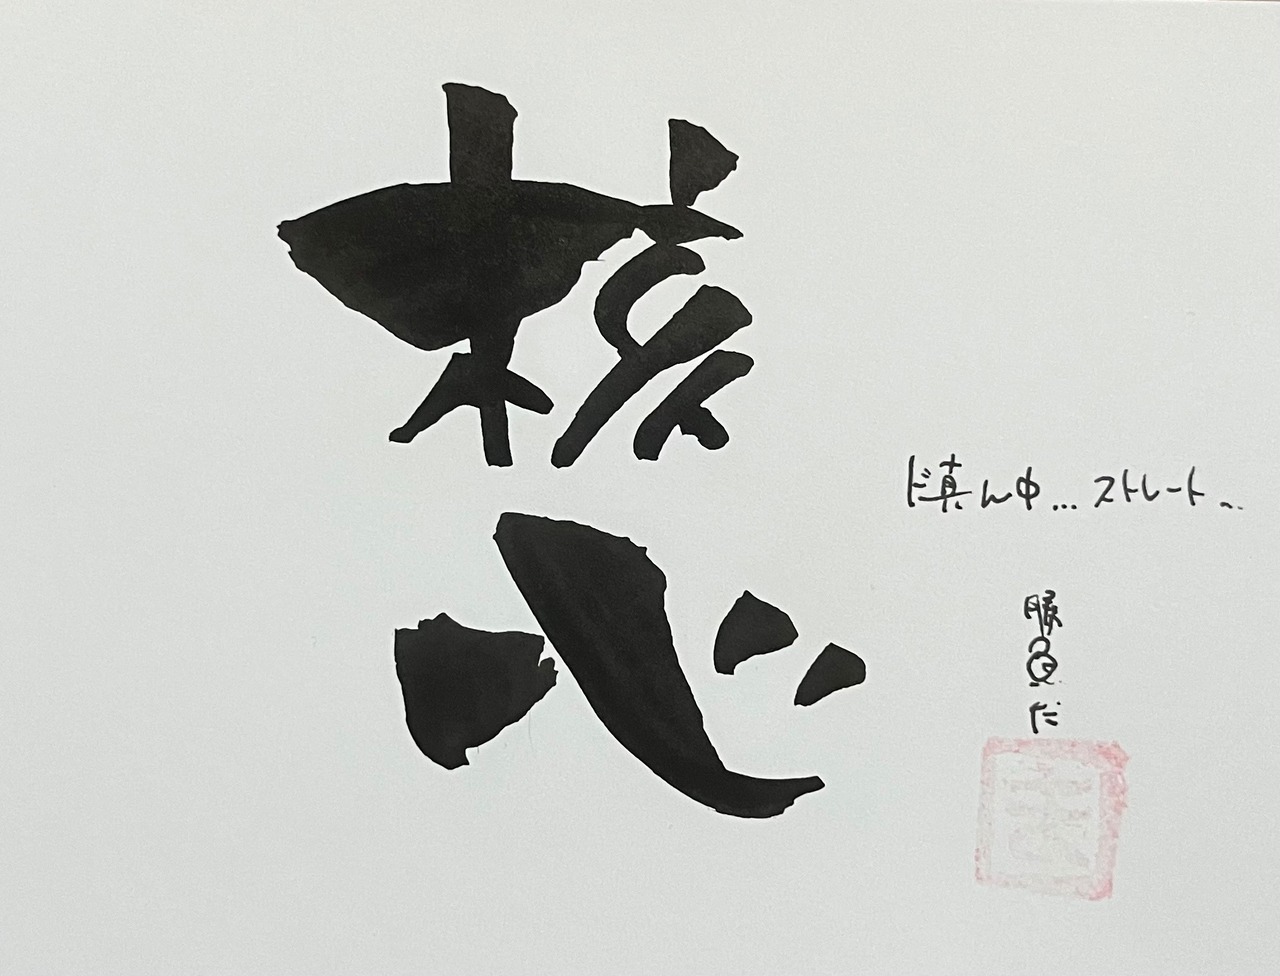 核心
ド真ん中...ストレート〜..
勝負だ